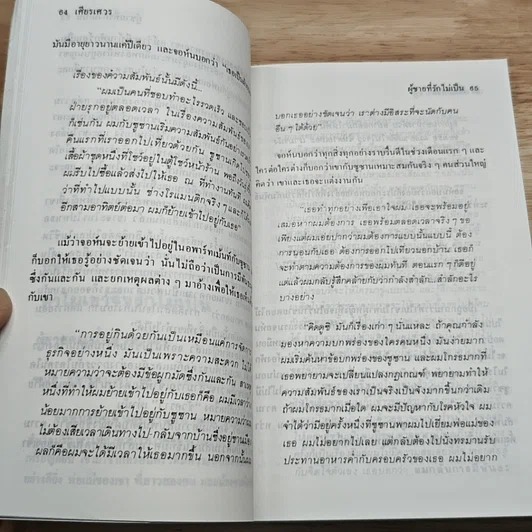 64 เศียรเศวร
มันมีอายุยาวนานแค่ปีเดียว และจอห์นบอกว่า
เรื่องของความสัมพันธ์นั้นมีดังนี้...
“ผมเป็นคนที่ชอบทำอะไรรวดเร็ว และ
ฝ่ายรุกอยู่ตลอดเวลา ในเรื่องความสัมพันธ์
ก็เช่นกัน ผมกับซูซานเริ่มความสัมพันธ์กันอย่าง
คืนแรกที่เราออกไปเที่ยวด้วยกัน ซูซาน
เสื้อผ้าชุดหนึ่งที่โชว์อยู่ในตู้โชว์หน้าร้าน
ผมรีบไปซื้อแล้วส่งไปให้เธอ ณ ที่ทำงานทันที
ว่าที่ทำไปแบบนั้น ช่างโรแมนติกจริง ๆ
อีกสามอาทิตย์ต่อมา ผมก็ย้ายเข้าไปอยู่กับเธอ”
แม้ว่าจอห์นจะย้ายเข้าไปอยู่ในอพาร์ทเม้นท์กับซูซาน
ก็บอกให้เธอรู้อย่างชัดเจนว่า นั่นไม่ถือว่าเป็นการมี
ซึ่งกันและกัน และยกเหตุผลต่าง ๆ มาอ้างเพื่อให้เธอ
กับเขา
“การอยู่กินด้วยกันเป็นเหมือนแค่การจัดการ
ธุรกิจอย่างหนึ่ง มันเป็นเพราะความสะดวก ไม่ได้
หมายความว่าจะต้องมีข้อผูกมัดซึ่งกันและกัน
หนึ่งที่ทำให้ผมย้ายเข้าไปอยู่กับเธอก็คือ ผมมีเวลา
น้อยมากการย้ายเข้าไปอยู่กับซูซาน หมายความว่า
ไม่ต้องเสียเวลาเดินทางไป-กลับจากบ้านซึ่งอยู่ชานเมือง
ผลก็คือผมจะได้มีเวลาให้เธอมากขึ้น นอกจากนั้น
ผู้ชายที่รักไม่เป็น 65
บอกเธออย่างชัดเจนว่า เราต่างมีอิสระที่จะนัดกับคน
อื่น ๆ ได้ด้วย”
จอห์นบอกว่าทุกสิ่งทุกอย่างราบรื่นดีในช่วงเดือนแรก ๆ และ
ใครต่อใครต่างก็บอกว่าเขากับซูซานเหมาะสมกันจริง ๆ คนส่วนใหญ่
คิดว่า เขาและเธอจะแต่งงานกัน
“เธอทำทุกอย่างเพื่อเอาใจผม เธอจะพร้อมอยู่
เสมอหากผมต้องการ เธอพร้อมตลอดเวลาจริง ๆ ขอ
เพียงแต่ผมเอยปากว่าผมต้องการแบบนั้นแบบนี้ ต้อง
การนอนกับเธอ ต้องการออกไปเที่ยวนอกบ้าน เธอก็
จะทำตามความต้องการของผมทันที ตอนแรก ๆ ก็ดีอยู่
แต่แล้วผมกลับรู้สึกคล้ายกับว่ากำลังสำลัก...สำลักอะไร
บางอย่าง
“คิดดูซิ มันก็เรื่องเก่า ๆ นั่นแหละ ถ้าคุณกำลัง
มองหาความบกพร่องของใครคนหนึ่ง มันง่ายมาก
ผมเริ่มค้นหาข้อบกพร่องของซูซาน และผมโกรธมากที่
เธอพยายามจะเปลี่ยนแปลงกฎเกณฑ์ พยายามทำให้
ความสัมพันธ์ของเราเป็นจริงเป็นจังมากขึ้นกว่าเดิม
ถ้าผมโกรธมากเมื่อใด ผมจะมีปัญหากับโรคหัวใจ ผม
จำได้ว่ามีอยู่ครั้งหนึ่งที่ซูซานพาผมไปเยี่ยมพ่อแม่ของ
เธอ ผมไม่อยากไปเลย แต่กลับต้องไปนั่งทรมานรับ
ประทานอาหารค่ำกับครอบครัวของเธอ ผมไม่อยาก